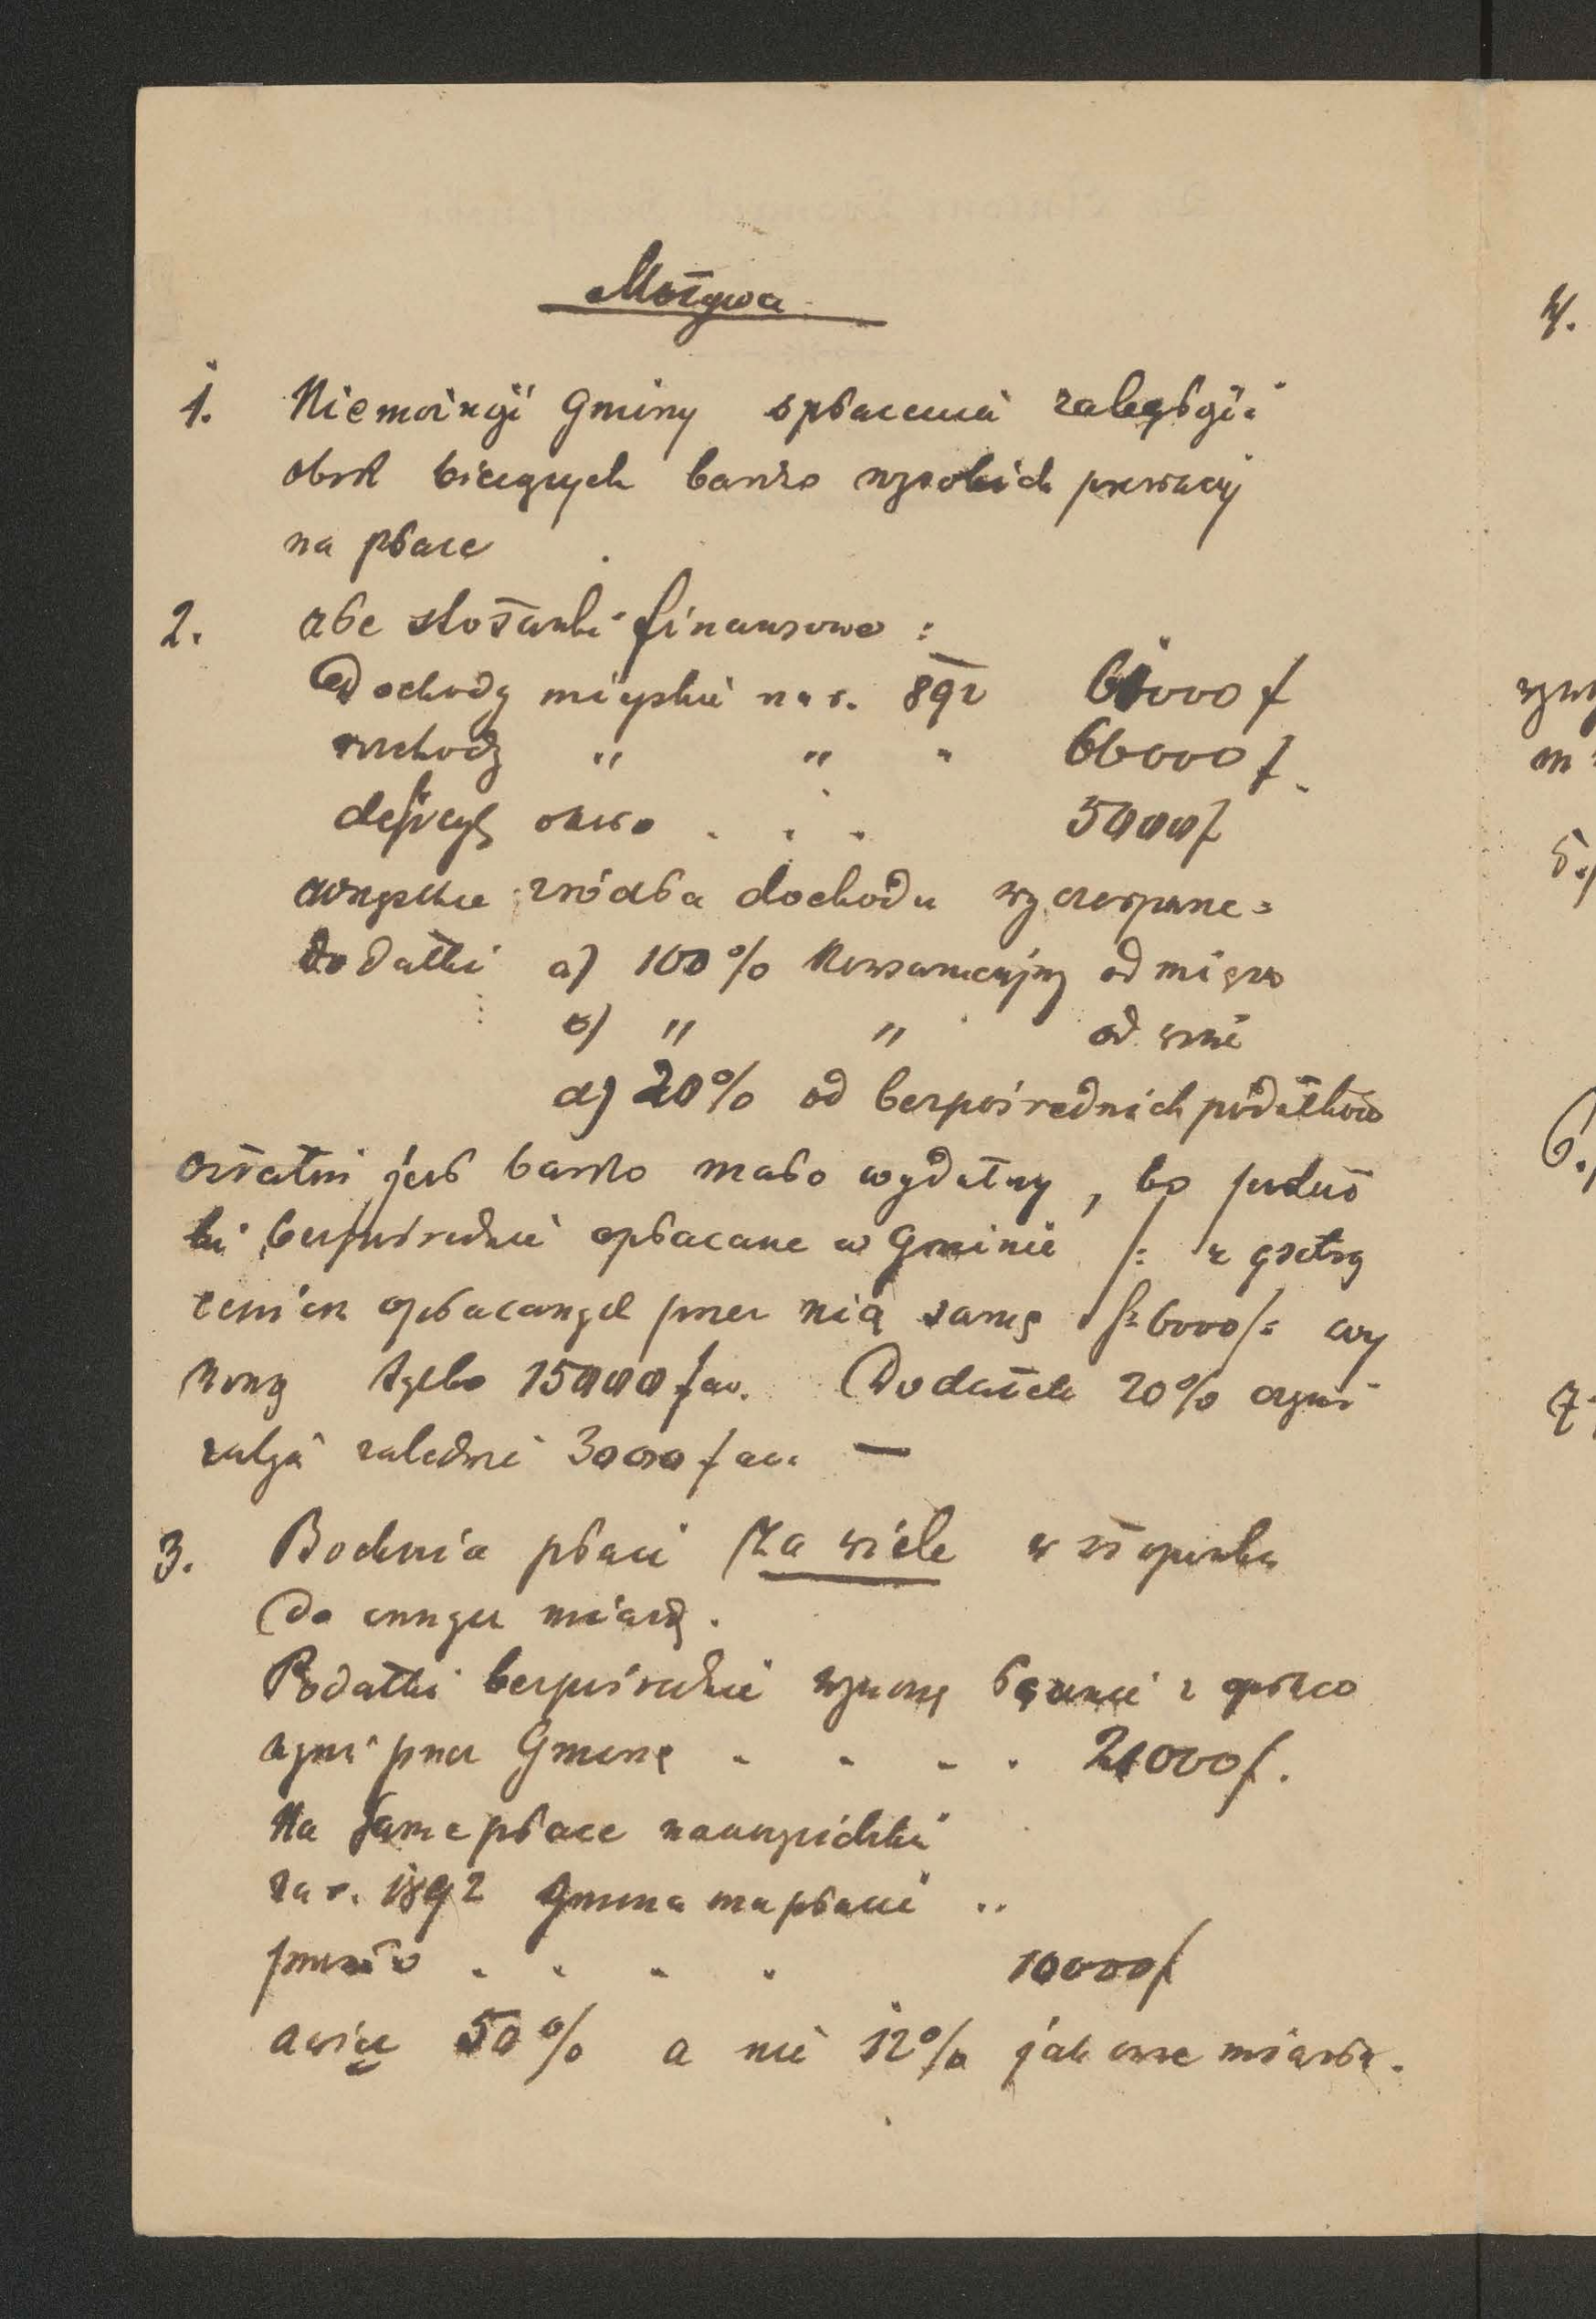 Motywa
1. Niemożność Gminy spłacenia zaległości
obok bieżących bardzo wysokich prestacyj
na płace
2. złe stosunki finansowe :
Dochody miejskie na r. 892 61000 f
rozchody " " " 66000 f.
deficyt około . . . 5000 f
wszystkie źródła dochodu wyczerpane =
dodatki a) 100 % konsumcyjny od mięsa
b) " " od wina
d) 20 % od bezpośrednich podatków
ostatni jest bardzo mało wydatny, bo podat
ki bezpośrednie opłacane w Gminie /: z
opłacanych przez nią samą 6000 /: wy
noszą tylko 15000 f aw. Dodatek 20 % czyni
zatem zaledwie 3000 f aw. —
3. Bochnia płaci za wiele w stosunku
do innych miast.
Podatki bezpośrednie wynoszą łącznie z opłaco
nymi przez Gminę . . . . 21000 f.
Na same płace nauczycielskie
za r. 1892 Gmina ma płacić ..
przeszło . . . . 10000 f
a więc 50 % a nie 12 % jak inne miasta.
4.
5.
6.
7.